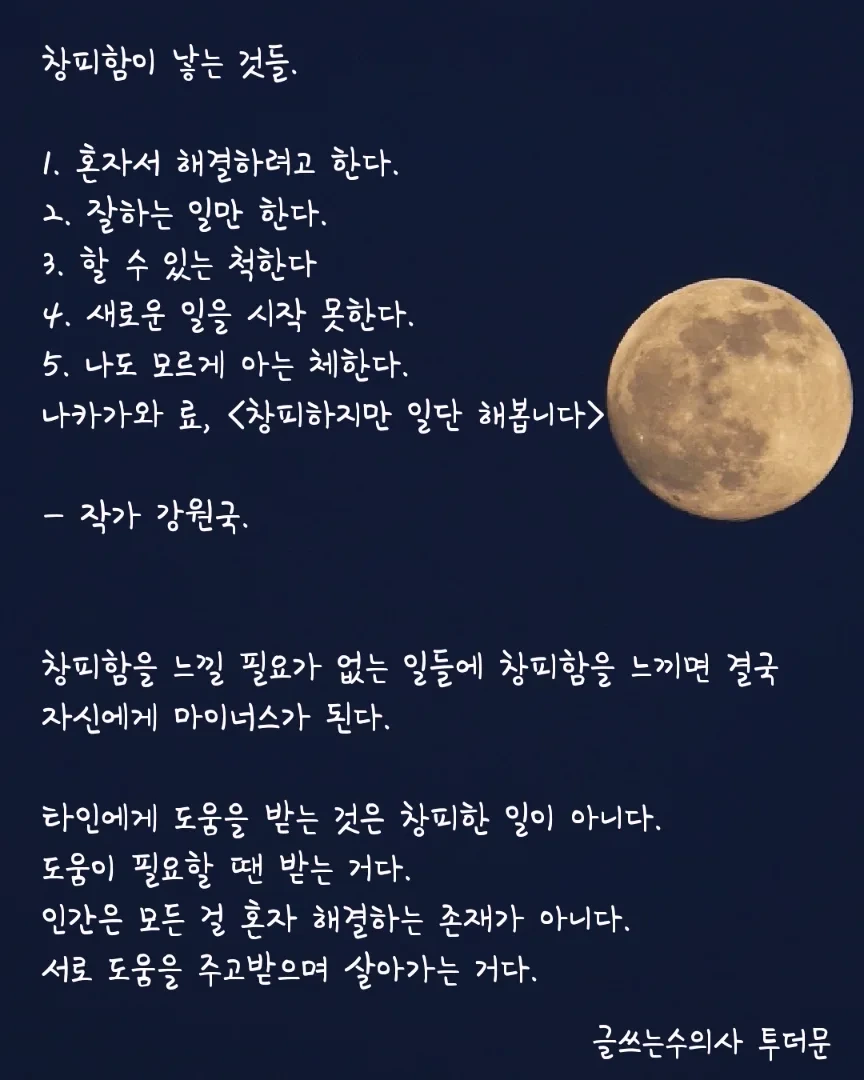 창피함이 낳는 것들.
1. 혼자서 해결하려고 한다.
2. 잘하는 일만 한다.
3. 할 수 있는 척한다
4. 새로운 일을 시작 못한다.
5. 나도 모르게 아는 체한다.
나카가와 료, <창피하지만 일단 해봅니다>
- 작가 강원국.
창피함을 느낄 필요가 없는 일들에 창피함을 느끼면 결국
자신에게 마이너스가 된다.
타인에게 도움을 받는 것은 창피한 일이 아니다.
도움이 필요할 땐 받는 거다.
인간은 모든 걸 혼자 해결하는 존재가 아니다.
서로 도움을 주고받으며 살아가는 거다.
글쓰는수의사 투더문